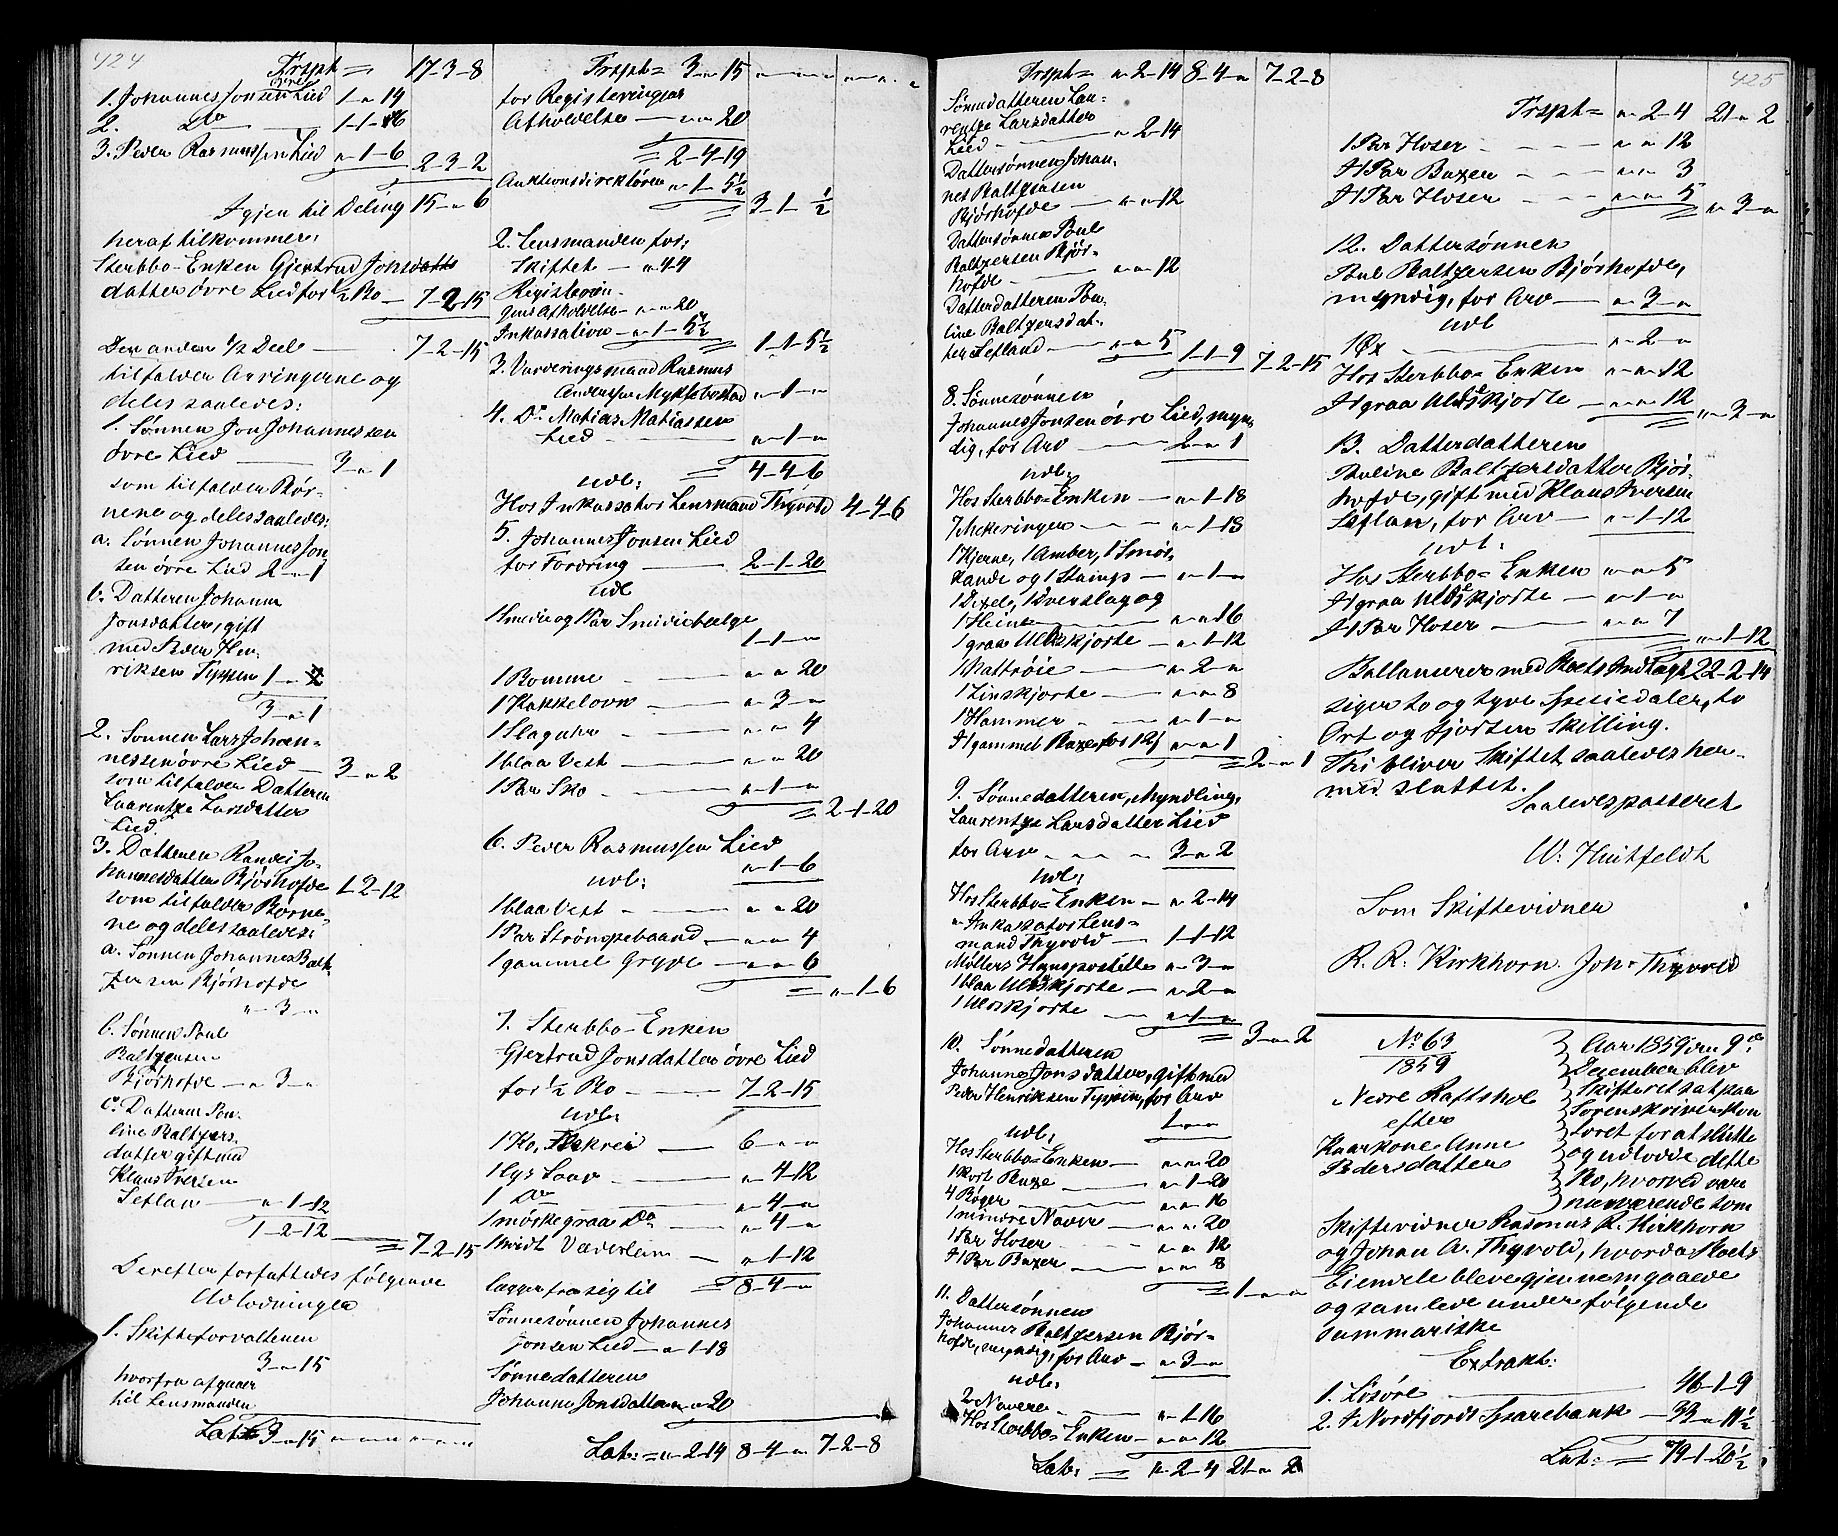 424
Trspt = 17-3-8
1. Johannes Jonsen Lied 1 - „ - 14
2. Do 1-1-16
3. Peder Rasmussen Lied „-1-6 2-3-2
Igjen til Deling 15-„-6
heraf tilkommer:
Sterbbo-Enken Gjertrud Jons
datter øvre Lied for ½ Bo 7-2-15
Den anden ½ Deel 7-2-15
tilfalder Arvingerne og
deles saaledes:
1. Sønnen Jon Johannessen
øvre Lied 3-„-1
som tilfalder Bør-
nene og deles saaledes:
a. Sønnen Johannes Jon
sen øvre Lied 2-„-1
b. Datteren Johanne
Jonsdatter, gift
med Peder Hen-
riksen Tippen 1-„-„
3-„-1
2. Sønnen Lars Johan-
nessen øvre Lied 3-„-2
som tilfalder Datteren
Laurentze Larsdatter
Lied.
3. Datteren Randei Jo-
hannesdatter Bjørhofde 1-2-12
som tilfalder Børne-
ne og deles saaledes:
a. Sønnen Johannes Balt-
zersen Bjørhofde
„-3-„
b. Sønnen Poul
Baltzersen
Bjørhofde „-3-„
c. Datteren Pou-
line Baltzers-
datter gift med
Klaus Iversen
Seflan „-1-12
1-2-12 7-2-15
Derefter forfattedes følgende
Udlodninger
1. Skifteforvalteren
3-„-15
hvorfra afgaaer
til Lensmanden
Lat. 3-„-15 „-„-„ „-„-„
Trspt = 3-„-15 „-„-„ „-„-„
for Registeringens
Afholdelse „-„-20
= 2-4-19
Auktionsdirektøren „-1-5½
3-1-½
2. Lensmanden for:
Skiftet „-44
Registerin-
gens Afholdelse „-„-20
Inkassation „-1-5½
1-1-5½
3. Vurderingsmand Rasmus
Andersen Myklebostad „-1-„
4. Do Matias Matiassen
Lied „-1-„
= 4-4-6
udl:
Hos Inkassator Lensmand Thyvold 4-4-6
5. Johannes Jonsen Lied
for Fordring 2-1-20
udl
1 Smedie og 1 Par Smediebælge
1-1-„
1 Bomme „-„-20
1 Kakkelovn „-3-„
1 Slaguhr „-„-4
1 blaa Vest „-„-20
1 Par Sko „-1-„
= 2-1-20
6. Peder Rasmussen Lied
„-1-6
udl:
1 blaa Vest „-„-20
1 Par Strömpebaand „-„-4
1 gammel Gryde „-„-6
= „-1-6
7. Sterbbo-Enken
Gjertrud Jonsdatter øvre Lied
for ½ Bo 7-2-15
udl:
1 Ko, Skrei 6-„-„
1 lys Saar „-4-12
1 Do „-4-„
1 mørkegraa Do „-4-„
1 hvidt Væderlam „-1-12
lagger fra sig til = 8-4-„
Sønnesønnen Johannes
Jonsen Lied „-1-18
Sønnedatteren
Johanne Jonsdatter „-20
Lat: = „-2-14 8-4-„ 7-2-8
425
Trspt = „-2-14 8-4-„ 7-2-8
Sønnedatteren Lau-
rentze Larsdatter
Lied „-2-14
Dattersønnen Johan-
nes Baltzersen
Bjørhofde „-„-12
Dattersønnen Poul
Baltzersen Bjør-
hofde „-„-12
Datterdatteren Pou-
line Baltzersdat-
ter Sefland „-„-5
1-1-9 7-2-15
8. Sønnesønnen
Johannes Jonsen øvre Lied, myn
dig, for Arv 2-„-1
udl:
Hos Sterbbo-Enken „-1-18
7 Mekeringer „-1-18
1 Kjerne, 1 Amber, 1 Smør-
kande og 1 Stamp „-1-„
1 Dixel, 1 Tverslag og
1 Hein „-„-16
1 graa Uldskjorte „-1-12
1 Nattrøie „-2-„
1 Linskjorte „-„-8
1 Hammer „-1-„
1 gammel Buxe for 12 s „-„-1
= 2-„-1
9. Sønnedatteren, Myndling,
Laurentze Larsdatter Lied
for Arv 3-„-2
udl:
Hos Sterbbo-Enken „-2-14
„ Inkassator Lens-
mand Thyvold 1-1-12
Möllers Huuspostille „-3-„
1 blaa Uldskjorte „-2-„
1 Uldskjorte „-1-„
= 3-„-2
10. Sønnedatteren
Johanne Jonsdatter, gift med
Peder Henriksen Tippen, for Arv
1-„-„
udl:
Hos Sterbbo-Enken „-„-20
1 kort Buxe „-1-20
4 Bøger „-„-16
1 mindre Naver „-„-20
1 Par Hoser „-„-12
1 Par Buxer „-„-8
= 1-„-„
11. Dattersønnen
Johannes Baltzersen Bjør-
hofde, myndig, for Arv „-3-„
udl:
2 Navere „-1-16
Hos Sterbbo-Enken „-„-12
Lat: = „-2-4 21-„-2
Trspt = „-2-4 21-„-2
1 Par Hoser „-„-12
1 Par Buxer „-„-3
1 Par Hoser „-„-5
= „-3-„
12. Dattersønnen
Poul Baltzersen Bjørhofde,
myndig, for Arv „-3-„
udl
1 Øx „-2-„
Hos Sterbbo-Enken „-„-12
1 graa Uldskjorte „-„-12
„-3-„
13. Datterdatteren
Pouline Baltzersdatter Bjør-
hofde, gift med Klaus Iversen
Seflan, for Arv „-1-12
udl:
Hos Sterbbo-Enken „-„-5
1 graa Uldskjorte „-1-„
1 Par Hoser „-„-7
„-1-12
Ballancerer med Boets Indtægt 22-2-14
siger to og tyve Speciedaler, to
Ort og fjorten Skilling.
Thi bliver Skiftet saaledes her-
med sluttet.
Saaledes passeret
W. Huitfeldt
Som Skiftevidner
R. R. Kirkhorn Joh. Thyvold
No 63
1859
Nedre Raftshol
efter
Huuskone Anne
Pedersdatter
Aar 1859 den 9de
December blev
Skifteret sat paa
Sorenskriverkon
toret for at slutte
og udlodde dette
Bo, hvorved vare
nærværende som
Skiftevidner Rasmus R. Kirkhorn
og Johan A. Thyvold, hvorda Boets
Eiendele bleve gjennemgaaede
og samlede under følgende
summariske
Extrakt:
1. Løsøre 46-1-9
2. I Nordfjords Sparebank 33-„-11½
Lat: = 79-1-20½